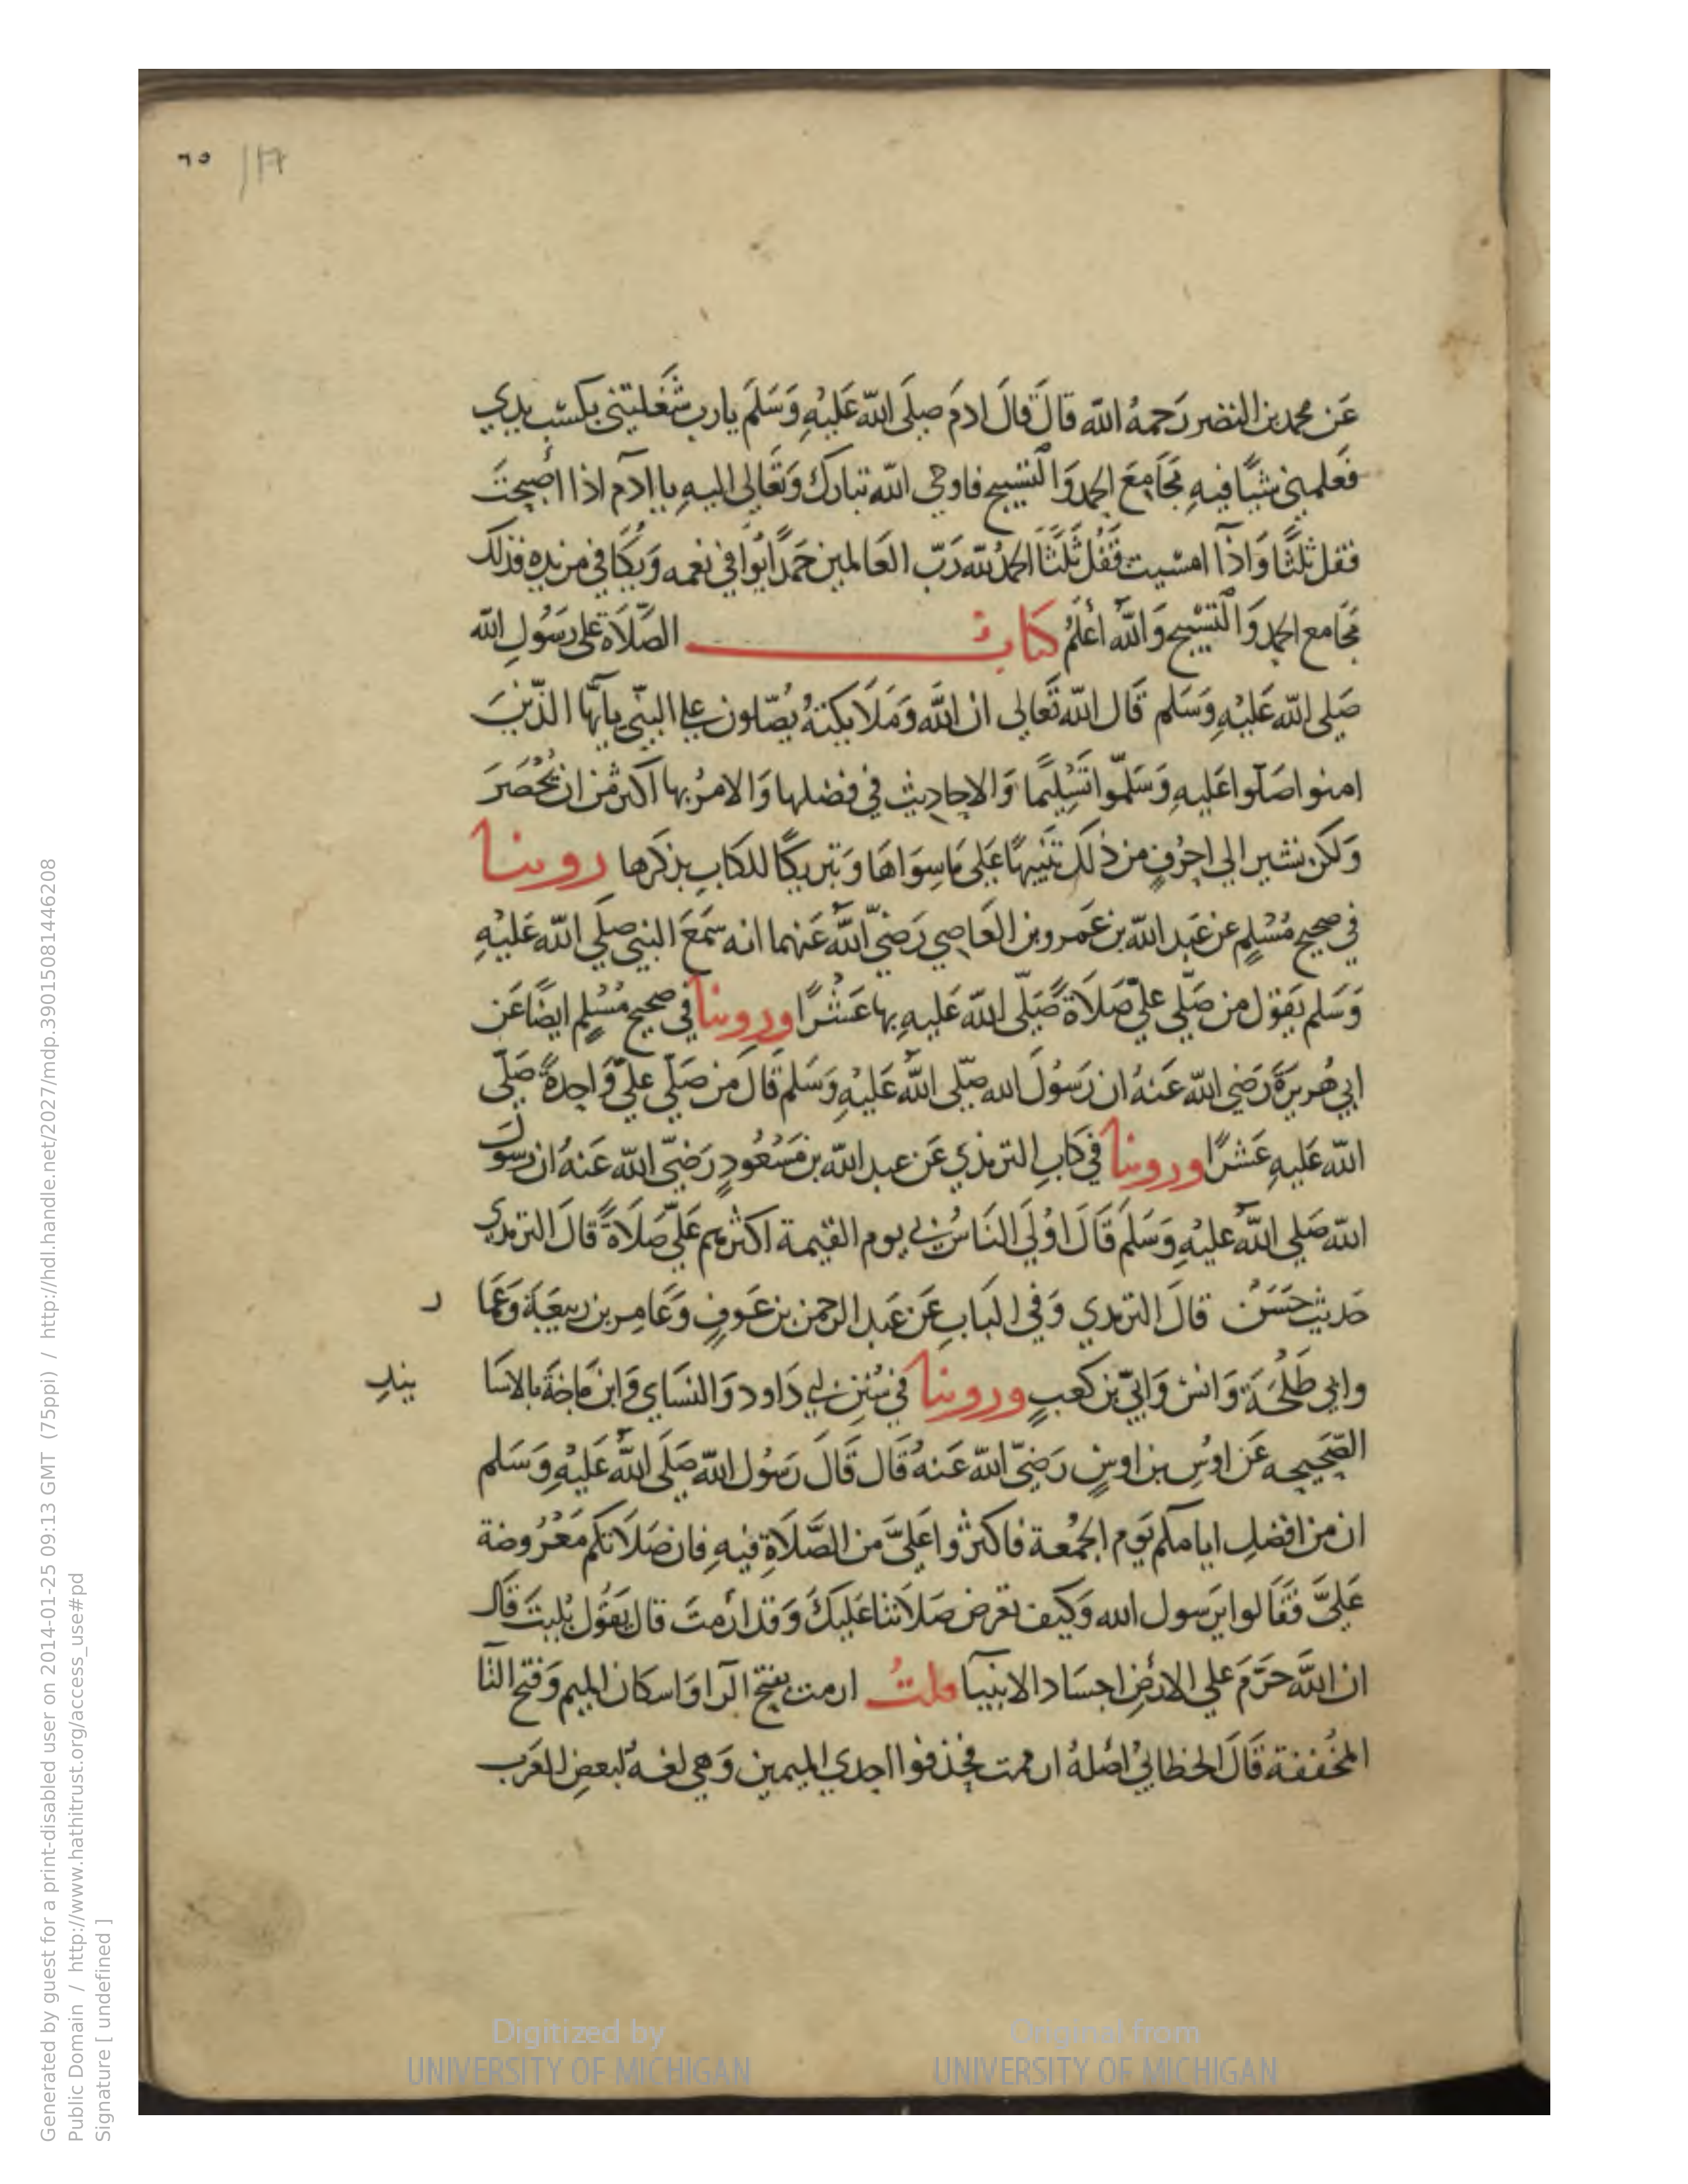 ٦٥
عَن محمد بن النضر رَحمهُ الله قالَ قالَ ادمَ صلى الله عَليْهِ وَسَلم يارب شَغَلتني بكسْب يدي
فعَلمني شيًا فيهِ مجَامِعَ الحمد وَالتسْبيح فاوحى الله تبارك وَتعَالى اليهِ يا ادم اذا اصْبحتَ
فقل ثلثًا وَاذا امسْيت فقُل ثَلثًا الحمدُ لله رَبّ العَالمين حَمدًا يُوافي نعمه وَيكَافي مزيده فذلك
مجَامع الحمد وَالتسْبيح وَاللهُ أعْلمُ كتاب الصَّلَاة على رَسُولِ الله
صَلى الله عَليْهِ وَسَلم قَال الله تعَالى ان الله وَمَلَايكتهُ يُصَلون على النبّي يايّها الذينَ
امنوا صَلّوا عَليهِ وَسَلّموا تَسْليمًا وَالاحاديث في فضلها وَالامرُ بها اكثر مْن ان تُحْصَرَ
وَلكن نشير الى احرُفٍ من ذلك تنبيهًا عَلى مَا سِوَاهَا وَتبريكًا للكتاب بذكرها روينا
في صحيح مُسْلم عن عَبد الله بن عَمرو بن العَاصي رَضيَ اللهُ عَنهما انه سمَعَ النبي صلى الله عَليْهِ
وَسَلم يَقوُل من صَلّى عليّ صَلَاةً صَلّى الله عَليهِ بها عَشْرًا وروينا في صحيح مُسْلم ايضًا عَن
ابي هُريرَةَ رَضيَ الله عَنهُ ان رَسُولَ الله صلّى اللهُ عَليْهِ وَسَلم قَالَ من صَلّى عليّ وَاحدةً صَلّى
الله عَليهِ عَشرًا وروينا في كتابِ الترمذي عَن عبد الله بن مَسْعُودٍ رَضيَ الله عَنهُ ان رسولَ
الله صَلى اللهُ عليْهِ وَسَلم قَالَ اوْلَى النَاسُ بي يوم القيمة اكثرهم عَليّ صَلَاةً قالَ الترمدي
حَديث حَسَنٌ قالَ الترمدي وَفي البَابِ عَن عَبد الرحمن بن عَوفٍ وَعَامِر بن ربيعَة وَعمَا ر
وابي طَلْحَة وَانسْ وَابيّ بن كعبٍ وروينا في سُنن ابي دَاود وَالنسَاي وَابن مَاجَة بالاسَا نيد
الصّحَيحِه عَن اوْسِ بن اوسٍ رَضيَ الله عَنهُ قَال قَالَ رَسُول الله صَلى اللهُ عَليْهِ وَسَلم
ان من افضل ايامكم يَوم الجُمْعة فاكثروا عَليَّ من الصَّلَاةِ فيهِ فان صَلَاتكم مَعْرُوضة
عَليَّ فقَالوا يرَسول الله وَكيف تعرض صَلَاتنا عَليكَ وَقد ارَمتَ قال يقوُل بَليتَ قَال
ان اللهَ حَرَّمَ على الارْضِ اجسَاد الانبيا قلتُ ارمت بفتح الرا وَاسكان الميم وَفتح التا
المخُففة قَالَ الخطابيُ اصْلهُ ارممت فحَذفوا احدي الميمين وَهي لغه لبعض العَرَب
Digitized by
UNIVERSITY OF MICHIGAN
Original from
UNIVERSITY OF MICHIGAN
Generated by guest for a print-disabled user on 2014-01-25 09:13 GMT (75ppi) / http://hdl.handle.net/2027/mdp.39015081446208
Public Domain / http://www.hathitrust.org/access_use#pd
Signature [ undefined ]